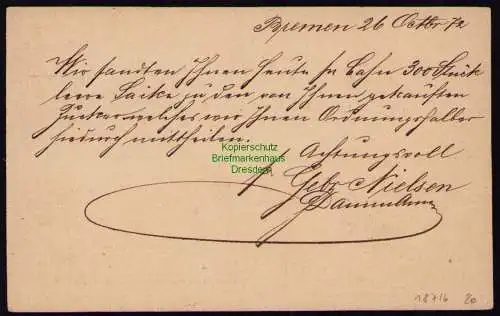 Bremen 26 Octbr 72
Wir sandten Ihnen heute pr Bahn 300 Stück
leere Säcke zu den von Ihnen gekauften
Zucker welches wir Ihnen Ordnungshalber
hiedurch mittheilen.
Achtungsvoll
Gebr Nielsen
Kopierschutz
Briefmarkenhaus
Dresden
18716 20